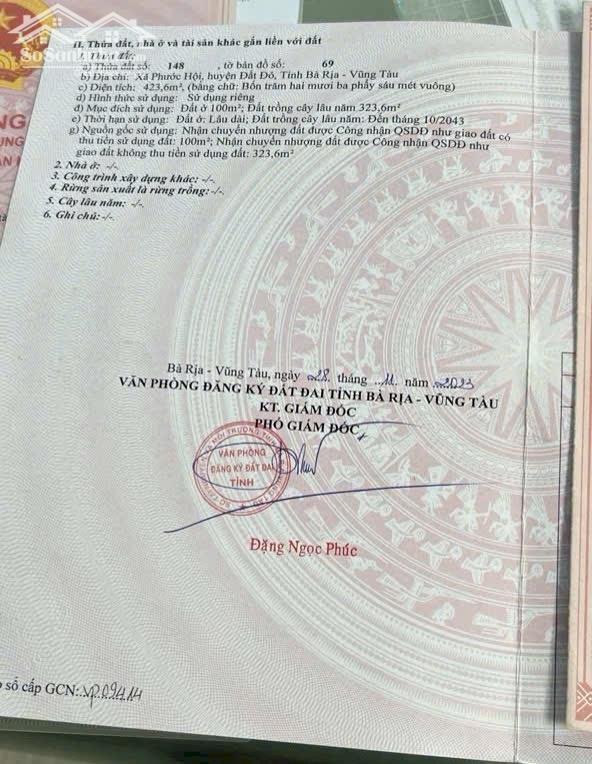 SoSan
II. Thửa đất, nhà ở và tài sản khác gắn liền với đất
1. Thửa đất:
a) Thửa đất số: 148 , tờ bản đồ số: 69
b) Địa chỉ: Xã Phước Hội, huyện Đất Đỏ, Tỉnh Bà Rịa - Vũng Tàu
c) Diện tích: 423,6m², (bằng chữ: Bốn trăm hai mươi ba phẩy sáu mét vuông)
d) Hình thức sử dụng: Sử dụng riêng
đ) Mục đích sử dụng: Đất ở 100m²; Đất trồng cây lâu năm 323,6m²
e) Thời hạn sử dụng: Đất ở: Lâu dài; Đất trồng cây lâu năm: Đến tháng 10/2043
g) Nguồn gốc sử dụng: Nhận chuyển nhượng đất được Công nhận QSDĐ như giao đất có
thu tiền sử dụng đất: 100m²; Nhận chuyển nhượng đất được Công nhận QSDĐ như
giao đất không thu tiền sử dụng đất: 323,6m²
2. Nhà ở: -/-.
3. Công trình xây dựng khác: -/-.
4. Rừng sản xuất là rừng trồng: -/-.
5. Cây lâu năm: -/-.
6. Ghi chú: -/-.
Bà Rịa - Vũng Tàu, ngày 28 tháng 11 năm 2023
VĂN PHÒNG ĐĂNG KÝ ĐẤT ĐAI TỈNH BÀ RỊA - VŨNG TÀU
KT. GIÁM ĐỐC
PHÓ GIÁM ĐỐC
VĂN PHÒNG
ĐĂNG KÝ ĐẤT ĐAI
TỈNH
Đặng Ngọc Phúc
số cấp GCN: VP.09414